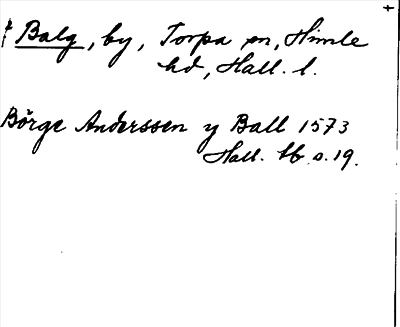 Balg, by, Torpa sn, Himle
hd, Hall. l.
Börge Anderssen y Ball 1573
Hall. tb s. 19.